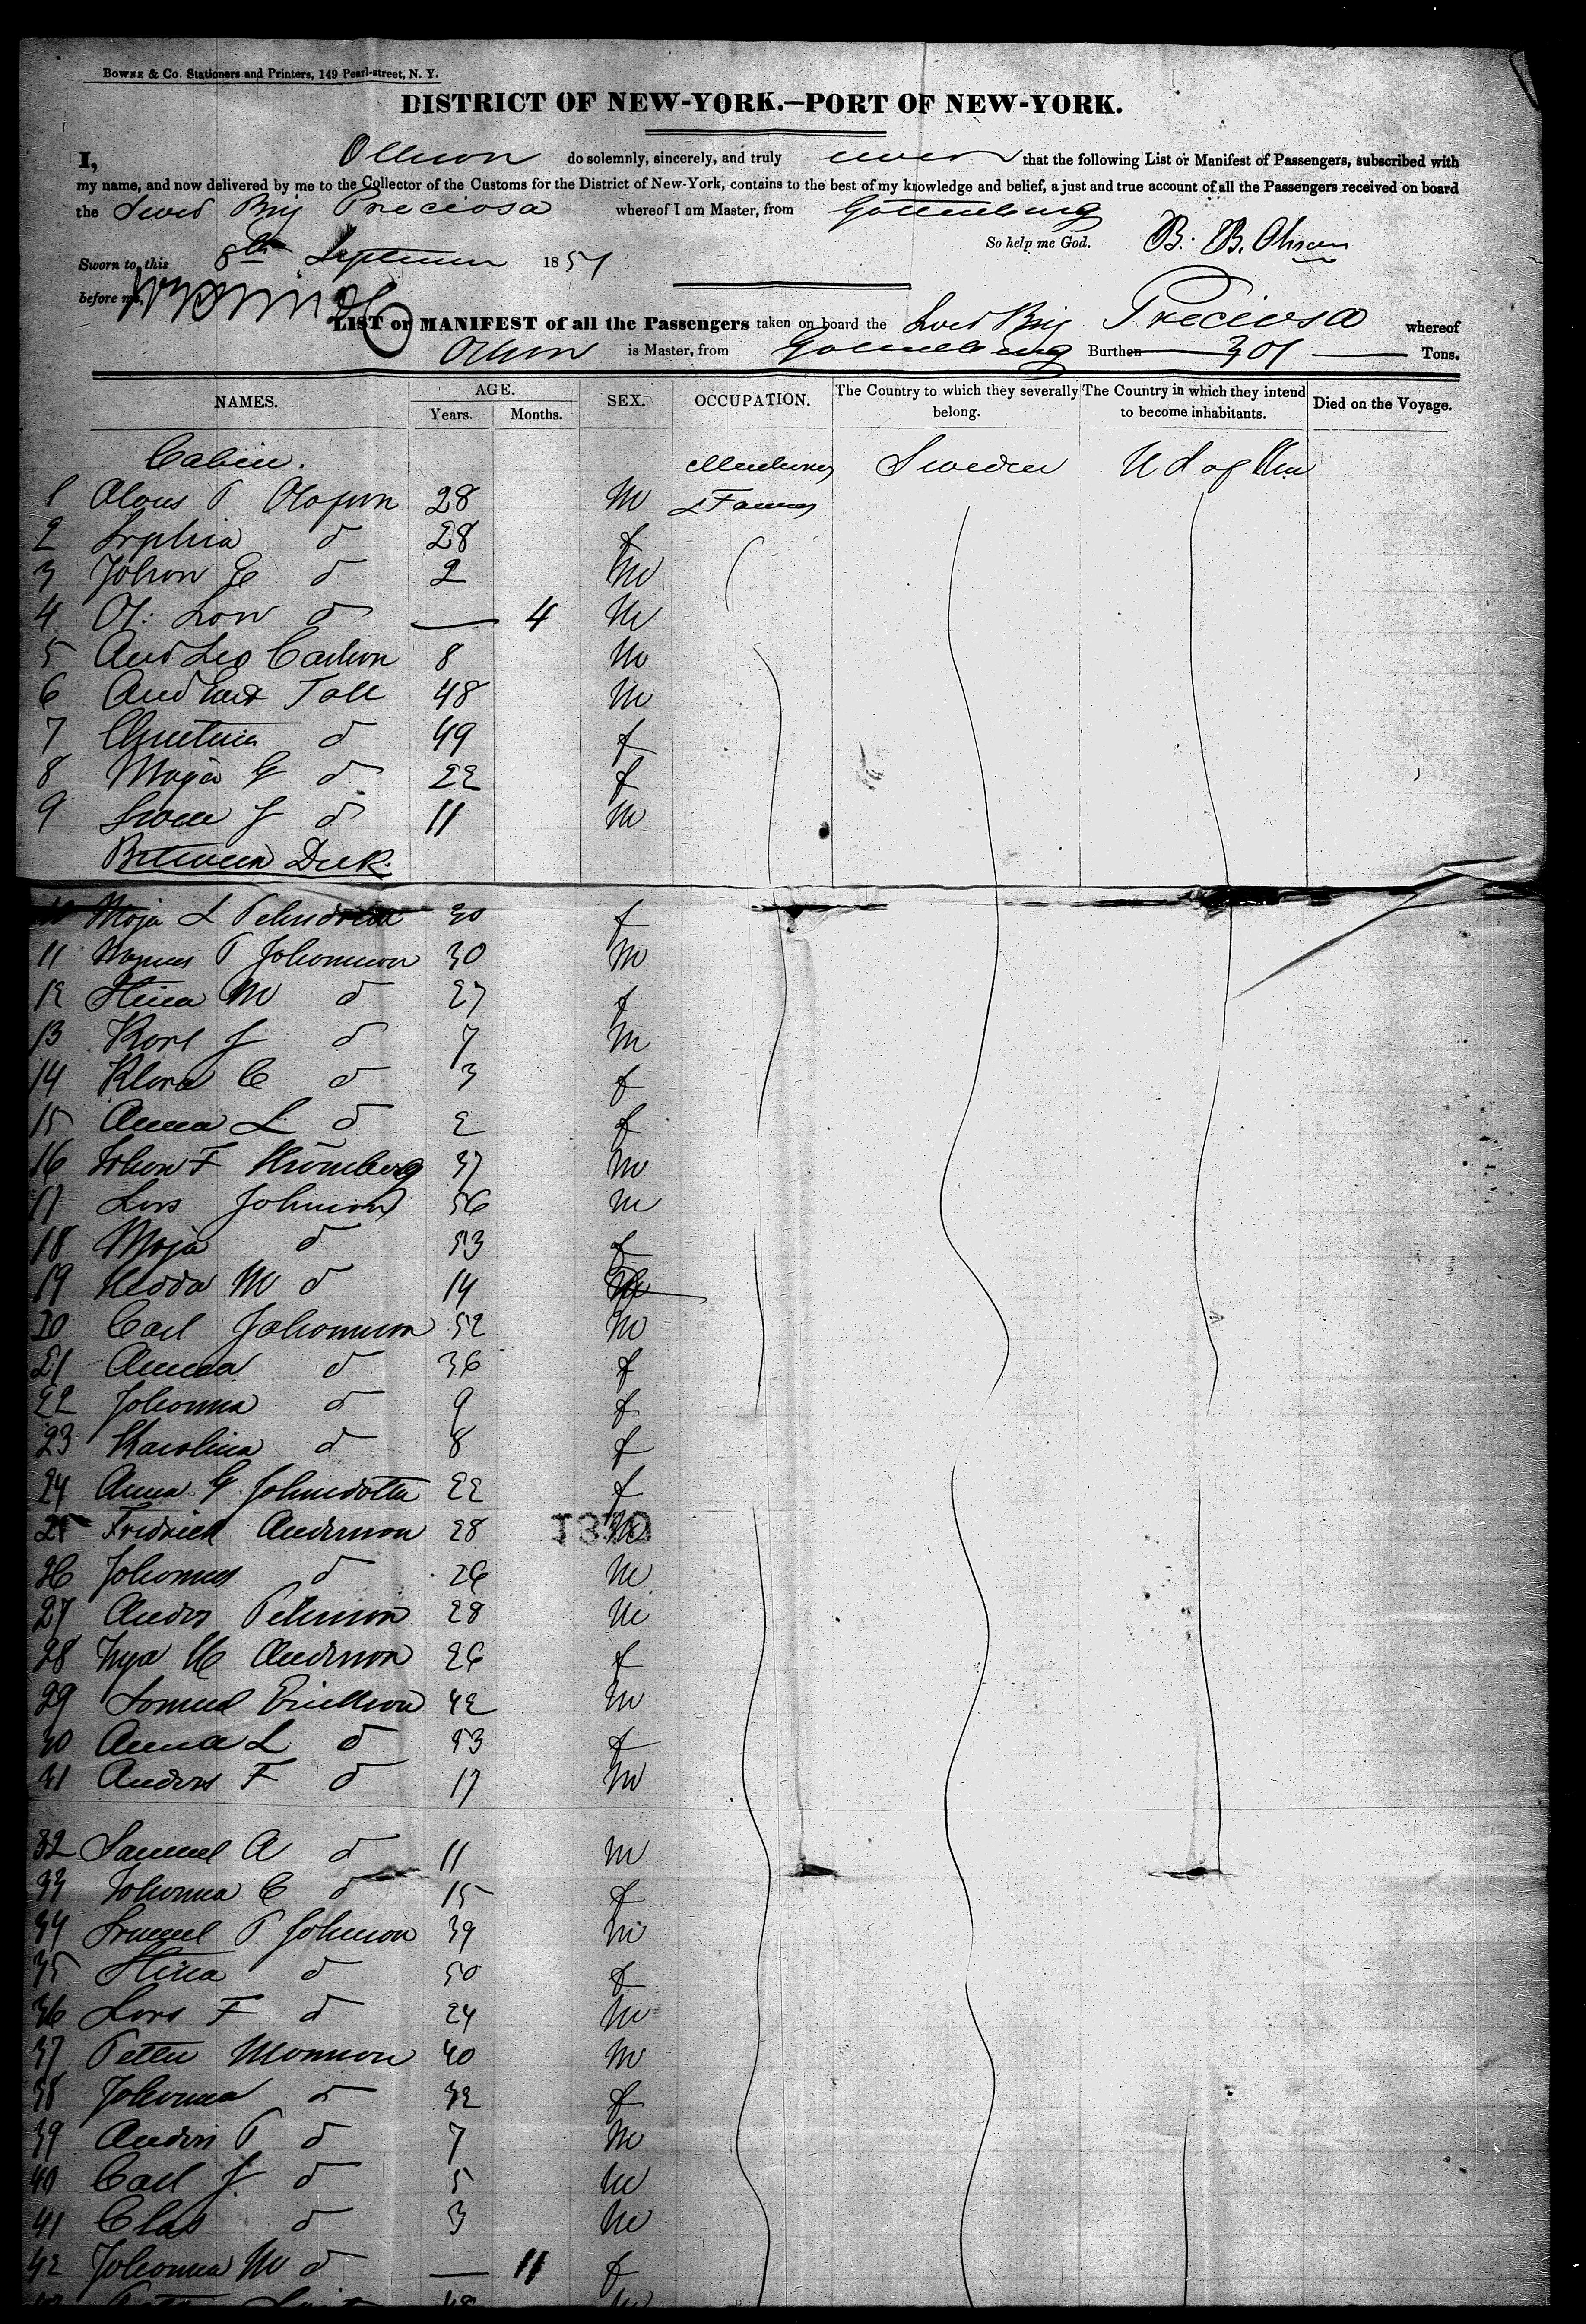 BOWNE & Co. Stationers and Printers, 149 Pearl-street, N. Y.
DISTRICT OF NEW-YORK.—PORT OF NEW-YORK.
I, Ollson do solemnly, sincerely, and truly swear that the following List or Manifest of Passengers, subscribed with
my name, and now delivered by me to the Collector of the Customs for the District of New-York, contains to the best of my knowledge and belief, a just and true account of all the Passengers received on board
the Swed Brig Preciosa whereof I am Master, from Gottenburg
So help me God. B. B. Ohsen
Sworn to, this 8th September 1851
before me,
LIST or MANIFEST of all the Passengers taken on board the Swed Brig Preciosa whereof
Olson is Master, from Gottenburg Burthen 301 Tons.
NAMES. AGE. Years. Months. SEX. OCCUPATION. The Country to which they severally belong. The Country in which they intend to become inhabitants. Died on the Voyage.
Cabin. Sweden U S of Am
1 P Olofson 28 M & Farmer
2 Sophia d 28 f
3 Johon E d 2 M
4 Of: Low d — 4 M
5 And Leo Carlson 8 M
6 And Tall 48 M
7 Christina d 49 f
8 Maja G d 22 f
9 Swen J d 11 M
Between Deck.
10 Maja L 30 f
11 Magnus P Johansson 30 M
12 Stina M d 27 f
13 Karl J d 7 M
14 Klara C d 3 f
15 Anna L d 2 f
16 Johon F Strömberg 37 M
17 Lars Johnson 56 M
18 Maja d 53 f
19 Hedda M d 14
20 Carl Johansson 52 M
21 Anna d 36 f
22 Johanna d 9 f
23 Karolina d 8 f
24 Anna G Johnsdotter 22 f
25 Fredrick Anderson 28 M
1310
26 Johannes d 26 M
27 Anders Peterson 28 M
28 Anderson 26 f
29 Samuel Erickson 42 M
30 Anna L d 53 f
31 Anders F d 17 M
32 Samuel A d 11 M
33 Johanna C d 15 f
34 Samuel P Johnson 39 M
35 Stina d 50 f
36 Lars F d 24 M
37 Petter Monson 40 M
38 Johanna d 32 f
39 Anders P d 7 M
40 Carl J d 5 M
41 Clas d 3 M
42 Johanna M d — 11 f